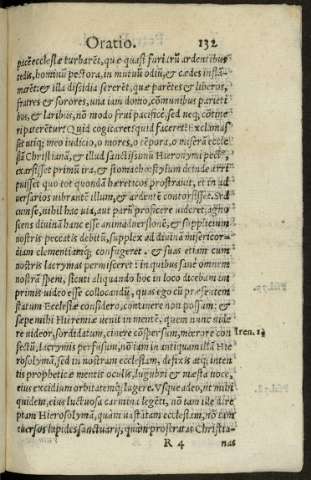 Oratio. 132
picē ecclesiæ turbarēt, quæ quasi furiarū ardentibus
tedis, hominū pectora, in mutuū odiū, & cædes inflā-
marēt: & illa dissidia sererēt, quæ parētes & liberos,
fratres & sorores, una iam domo, cōmunibus parieti
bus, & laribus, nō modo frui pacificè, sed neq, cōtine
ri paterētur? Quid cogitaret? quid faceret? Exclamas
set utiq; meo iudicio, o mores, o tēpora, o miserā eccle
siā Christianā, & illud sanctissimū Hieronymi pectꝰ,
exarsisset primū ira, & stomacho: stylum deinde arri
puisset quo tot quondā hæreticos prostrauit, et in ad
uersarios uibrantē illum, & ardentē contorsisset. Sed
cum se, nihil hac uia, aut parū proficere uideret: agno
scens diuinā hanc esse animaduersionē, & suppliciū
nostris peccatis debitū, supplex ad diuinā misericor-
diam clementiamq; confugeret. & suas etiam cum
nostris lacrymas permisceret: in quibus sanè omnem
nostrā spem, sicuti aliquando hoc in loco docebam in
primis uideo esse collocandū, quas ego cū præsentem
statum Ecclesiæ considero, continere non possum: &
sæpe mihi Hieremiæ uenit in mentē, quem nunc uide
re uideor, sordidatum, cinere cōspersum, mœrore con Tren. 14
fectū, lacrymis perfusum, nō iam in antiquam illā Hie
rosolymā, sed in nostram ecclesiam, defixis atq; inten
tis propheticæ mentis oculis, lugubri & mæsta uoce,
eius excidium orbitatemq; lugere. Vsque adeo, ut mihi
quidem, eius luctuosa carmina legēti, nō tam ille dire
ptam Hierosolymā, quàm uastatam ecclesiam, nō tam
euersos lapides sanctuarij, quàm prostratas Christia-
R 4 nas